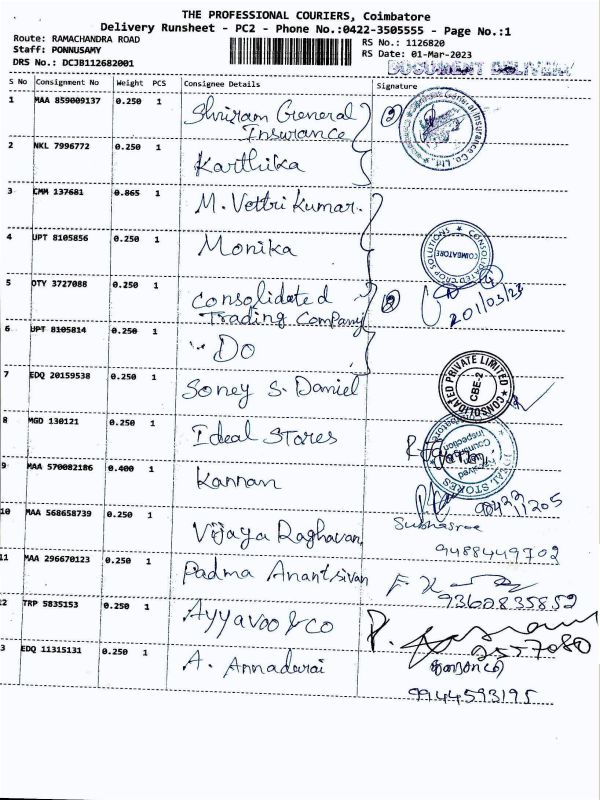 THE PROFESSIONAL COURIERS, Coimbatore
Delivery Runsheet - PC2 - Phone No.:0422-3505555 - Page No.:1
Route: RAMACHANDRA ROAD
RS No.: 1126820
Staff: PONNUSAMY
RS Date: 01-Mar-2023
DRS No.: DCJB112682001
DOCUMENT DELIVERY
S No Consignment No Weight PCS Consignee Details Signature
1 MAA 859009137 0.250 1 Shriram General
Insurance
2 NKL 7996772 0.250 1 Karthika
3 CMM 137681 0.865 1 M. Vettri Kumar.
4 UPT 8105856 0.250 1 Monika
CONSOLIDATED
COIMBATORE
5 OTY 3727088 0.250 1 Consolidated
Trading Company
6 UPT 8105814 0.250 1 Do
7 EDQ 20159538 0.250 1 Soney S. Daniel
CONSOLIDATED PRIVATE LIMITED
CBE-2
8 MGD 130121 0.250 1 Ideal Stores
9 MAA 570082186 0.400 1 Kannan
10 MAA 568658739 0.250 1 Vijaya Raghavan, Subhasree
9488449702
11 MAA 296670123 0.250 1 Padma Anantsivan
9360835852
TRP 5835153 0.250 1 Ayyavoo & co
EDQ 11315131 0.250 1 A. Annadurai
9944593195